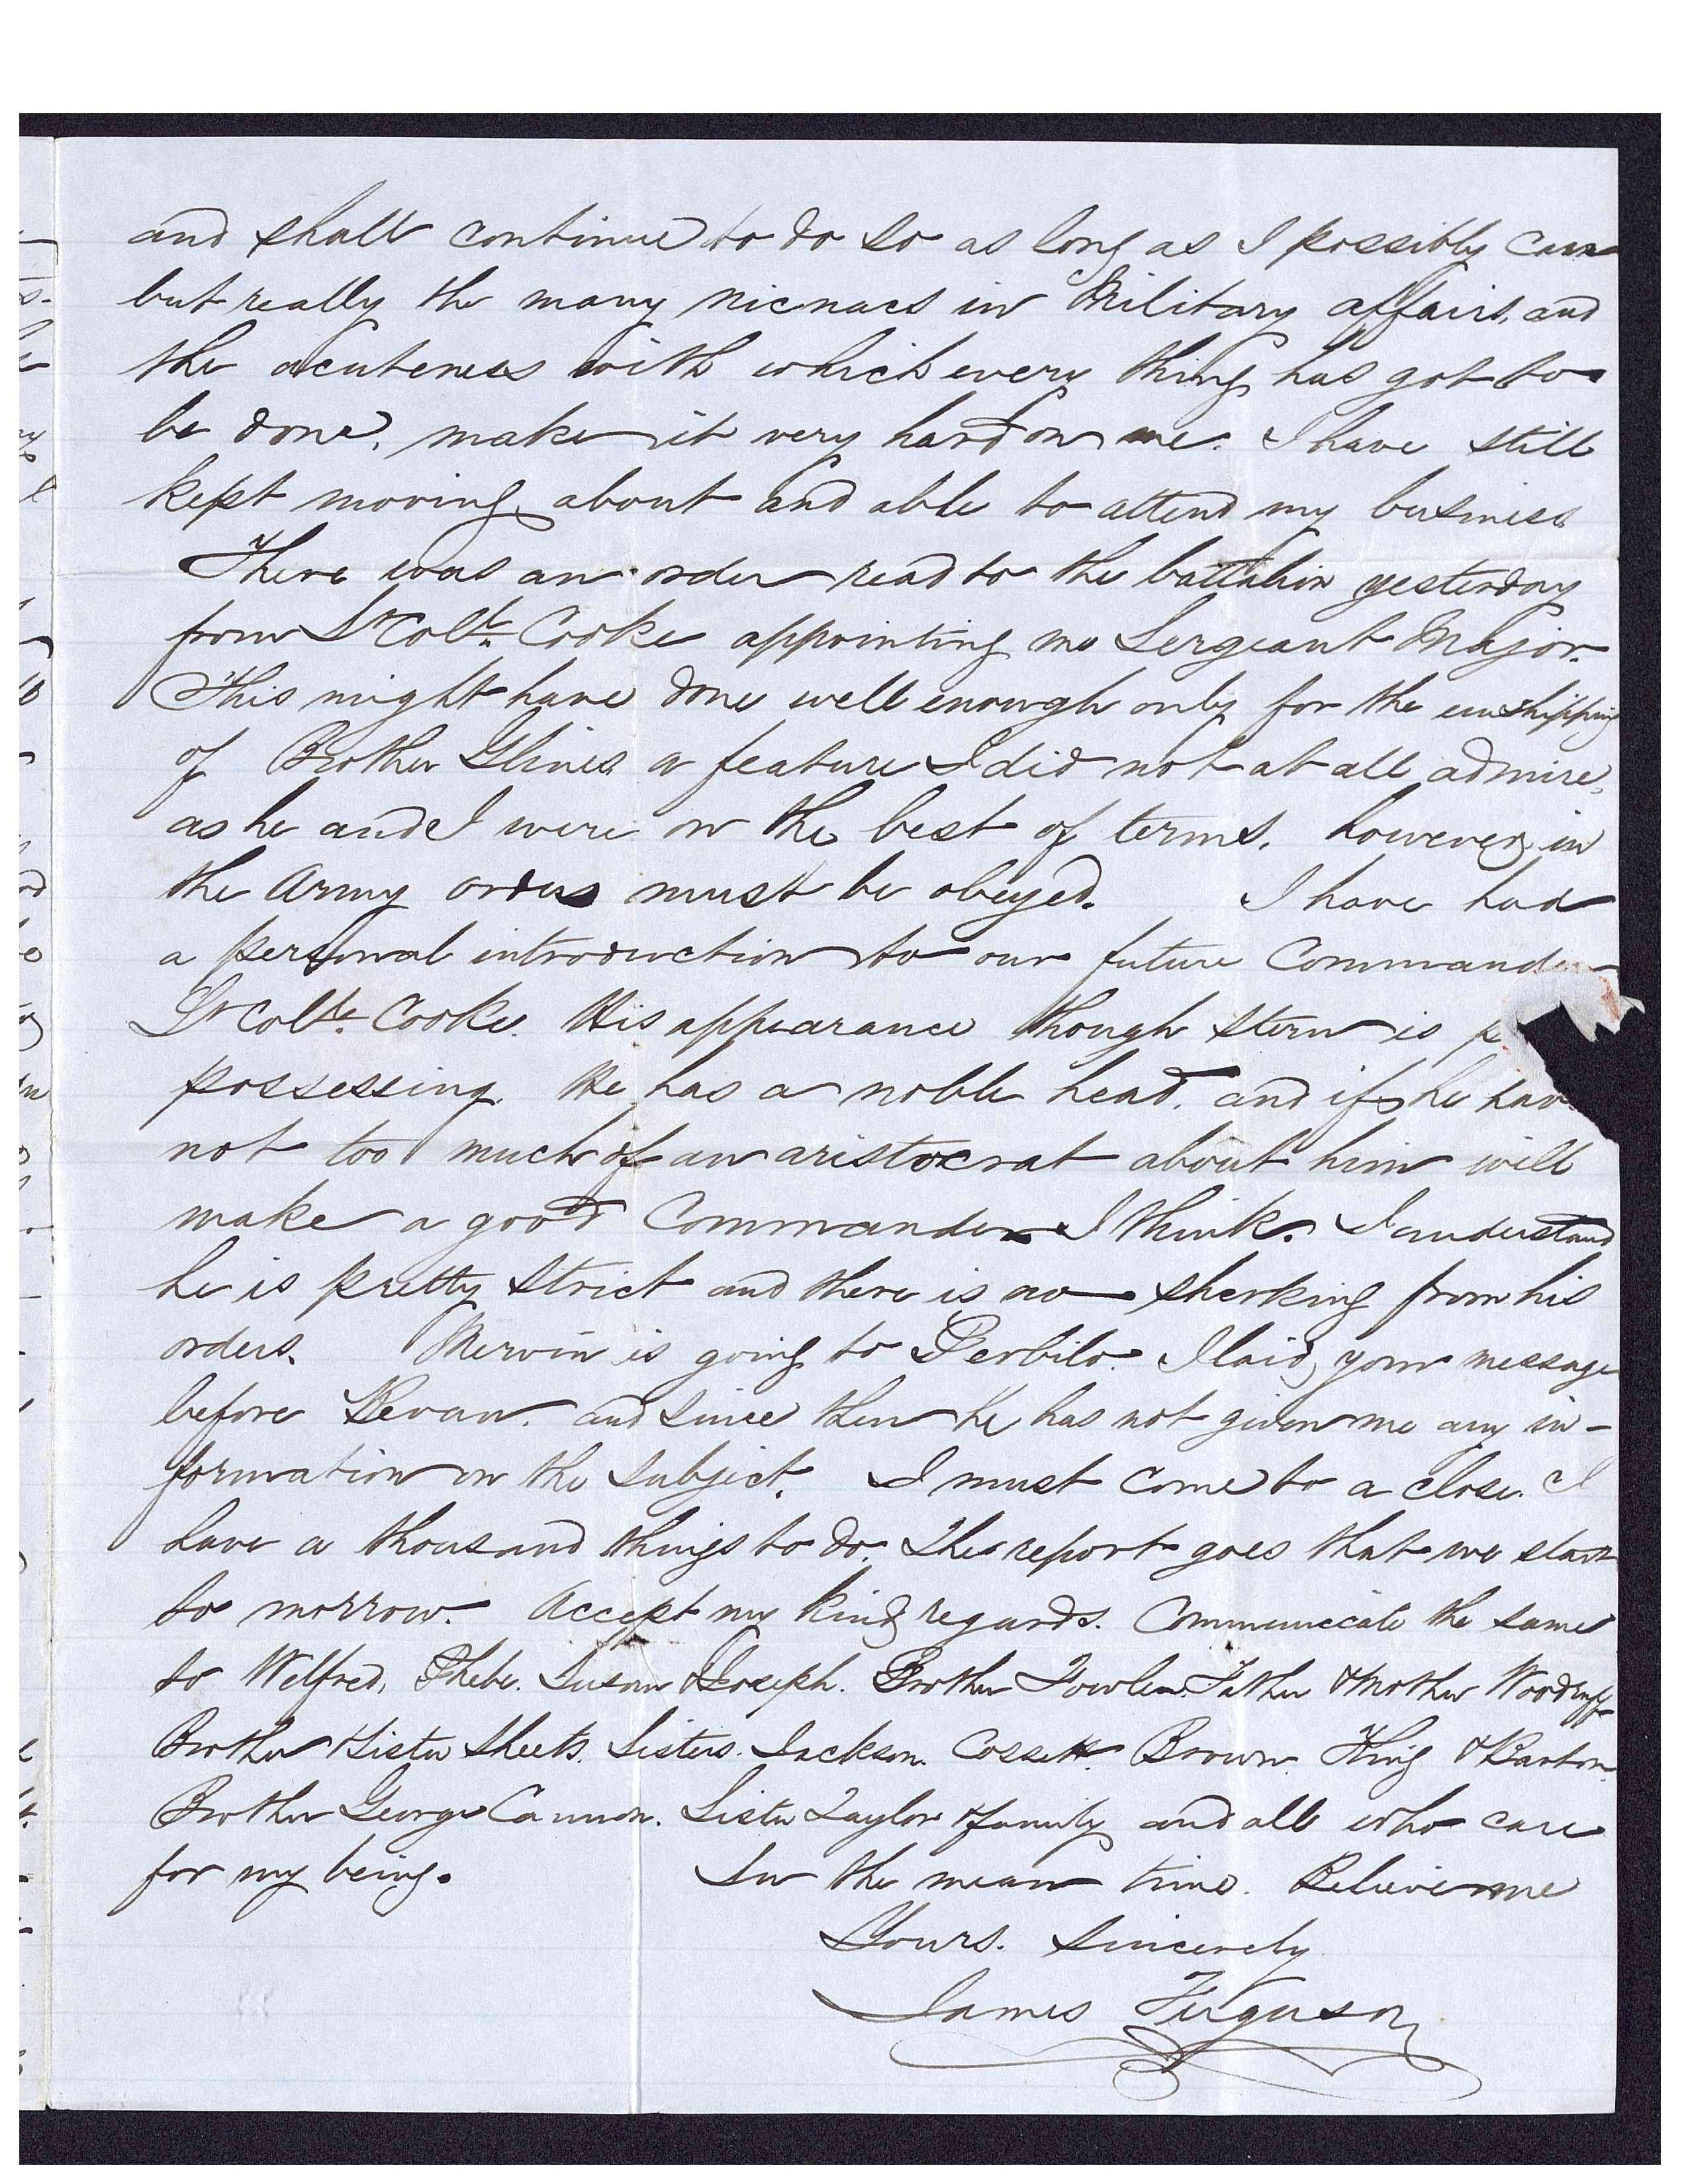 and shall continue to do so as long as I possibly can
but really the many nicnacs in Military affairs, and
the acuteness with which every thing has got to
be done, make it very hard on me. I have still
kept moving about and able to attend my business
There was an order read to the battalion yesterday
from Lt Colt. Cooke appointing me Sergeant Major.
This might have done well enough only for the unshipping
of Brother Glines a feature I did not at all admire,
as he and I were on the best of terms. however, in
the Army orders must be obeyed. I have had
a personal introduction to our future Commander
Lt Colt. Cooke. His appearance though stern is
possessing. He has a noble head. and if he have
not too much of an aristocrat about him will
make a good Commander I think. I understand
he is pretty strict and there is no sherking from his
orders. Mervin is going to Perbilo. I laid your message
before Bevan. and since then he has not given me any in-
formation on the subject. I must come to a close. I
have a thousand things to do. The report goes that we start
to morrow. Accept my kind regards. Communicate the same
to Welfred, Phebe. Susan & Joseph. Brother Fowler. Father & Mother Woodruff
Brother & Sister Sheets. Sisters. Jackson. Cossett. Brown. King & Barton.
Brother George Cannon. Sister Taylor & family and all who care
for my being. In the mean time. Believe me
Yours. Sincerely
James Ferguson